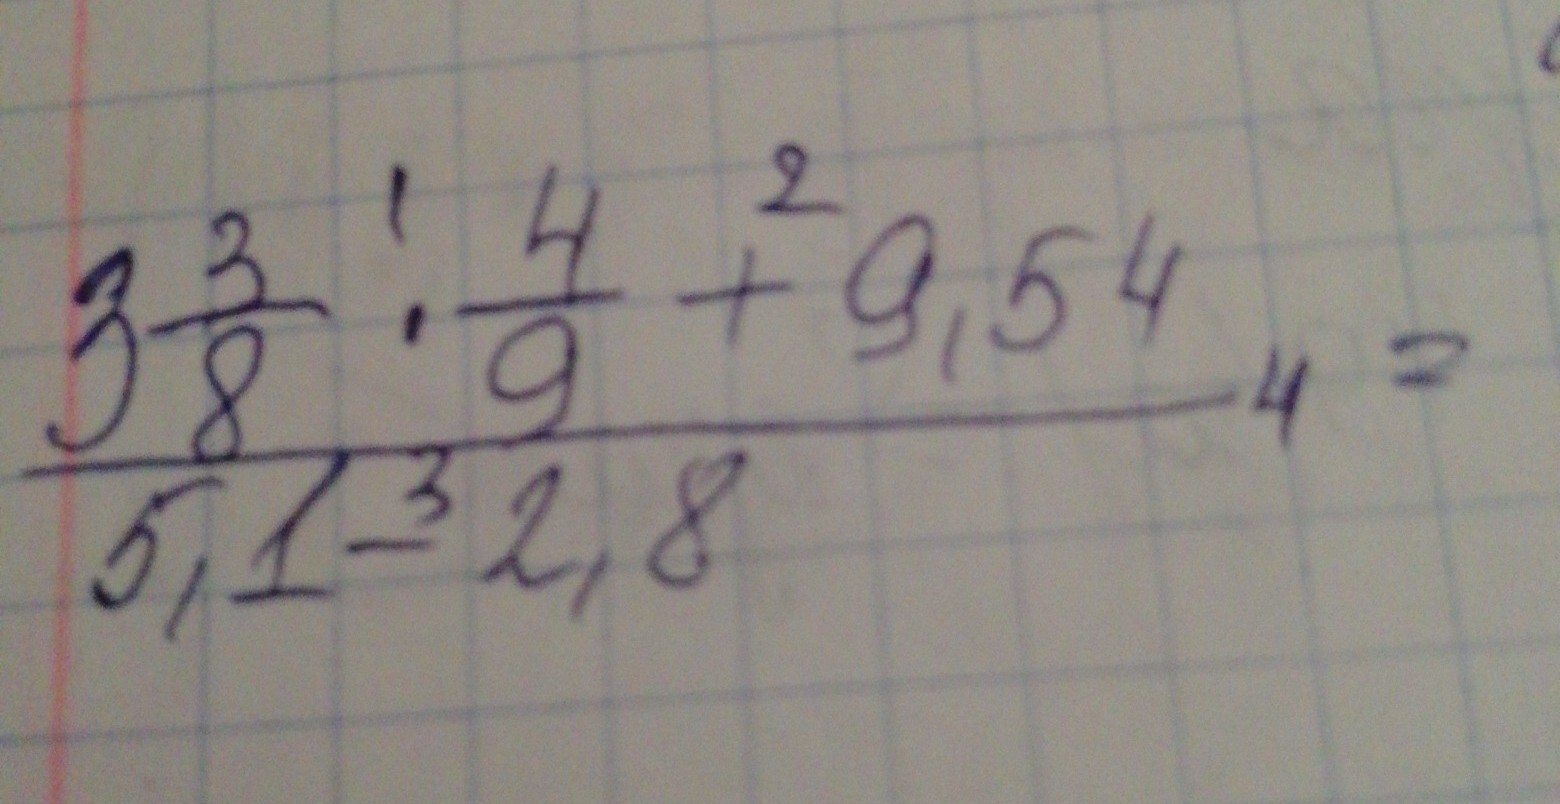 3 3/8 ·¹ 4/9 +² 9,54
⁴ =
5,1 −³ 2,8